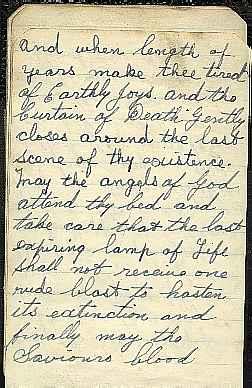 and when length of
years make thee tired
of Earthly Joys. and the
Curtain of Death Gently
closes around the last
scene of thy existence.
may the angels of God
attend thy bed and
take care that the last
expiring lamp of Life
shall not receive one
rude blast to hasten
its extinction and
finally may the
Saviours blood